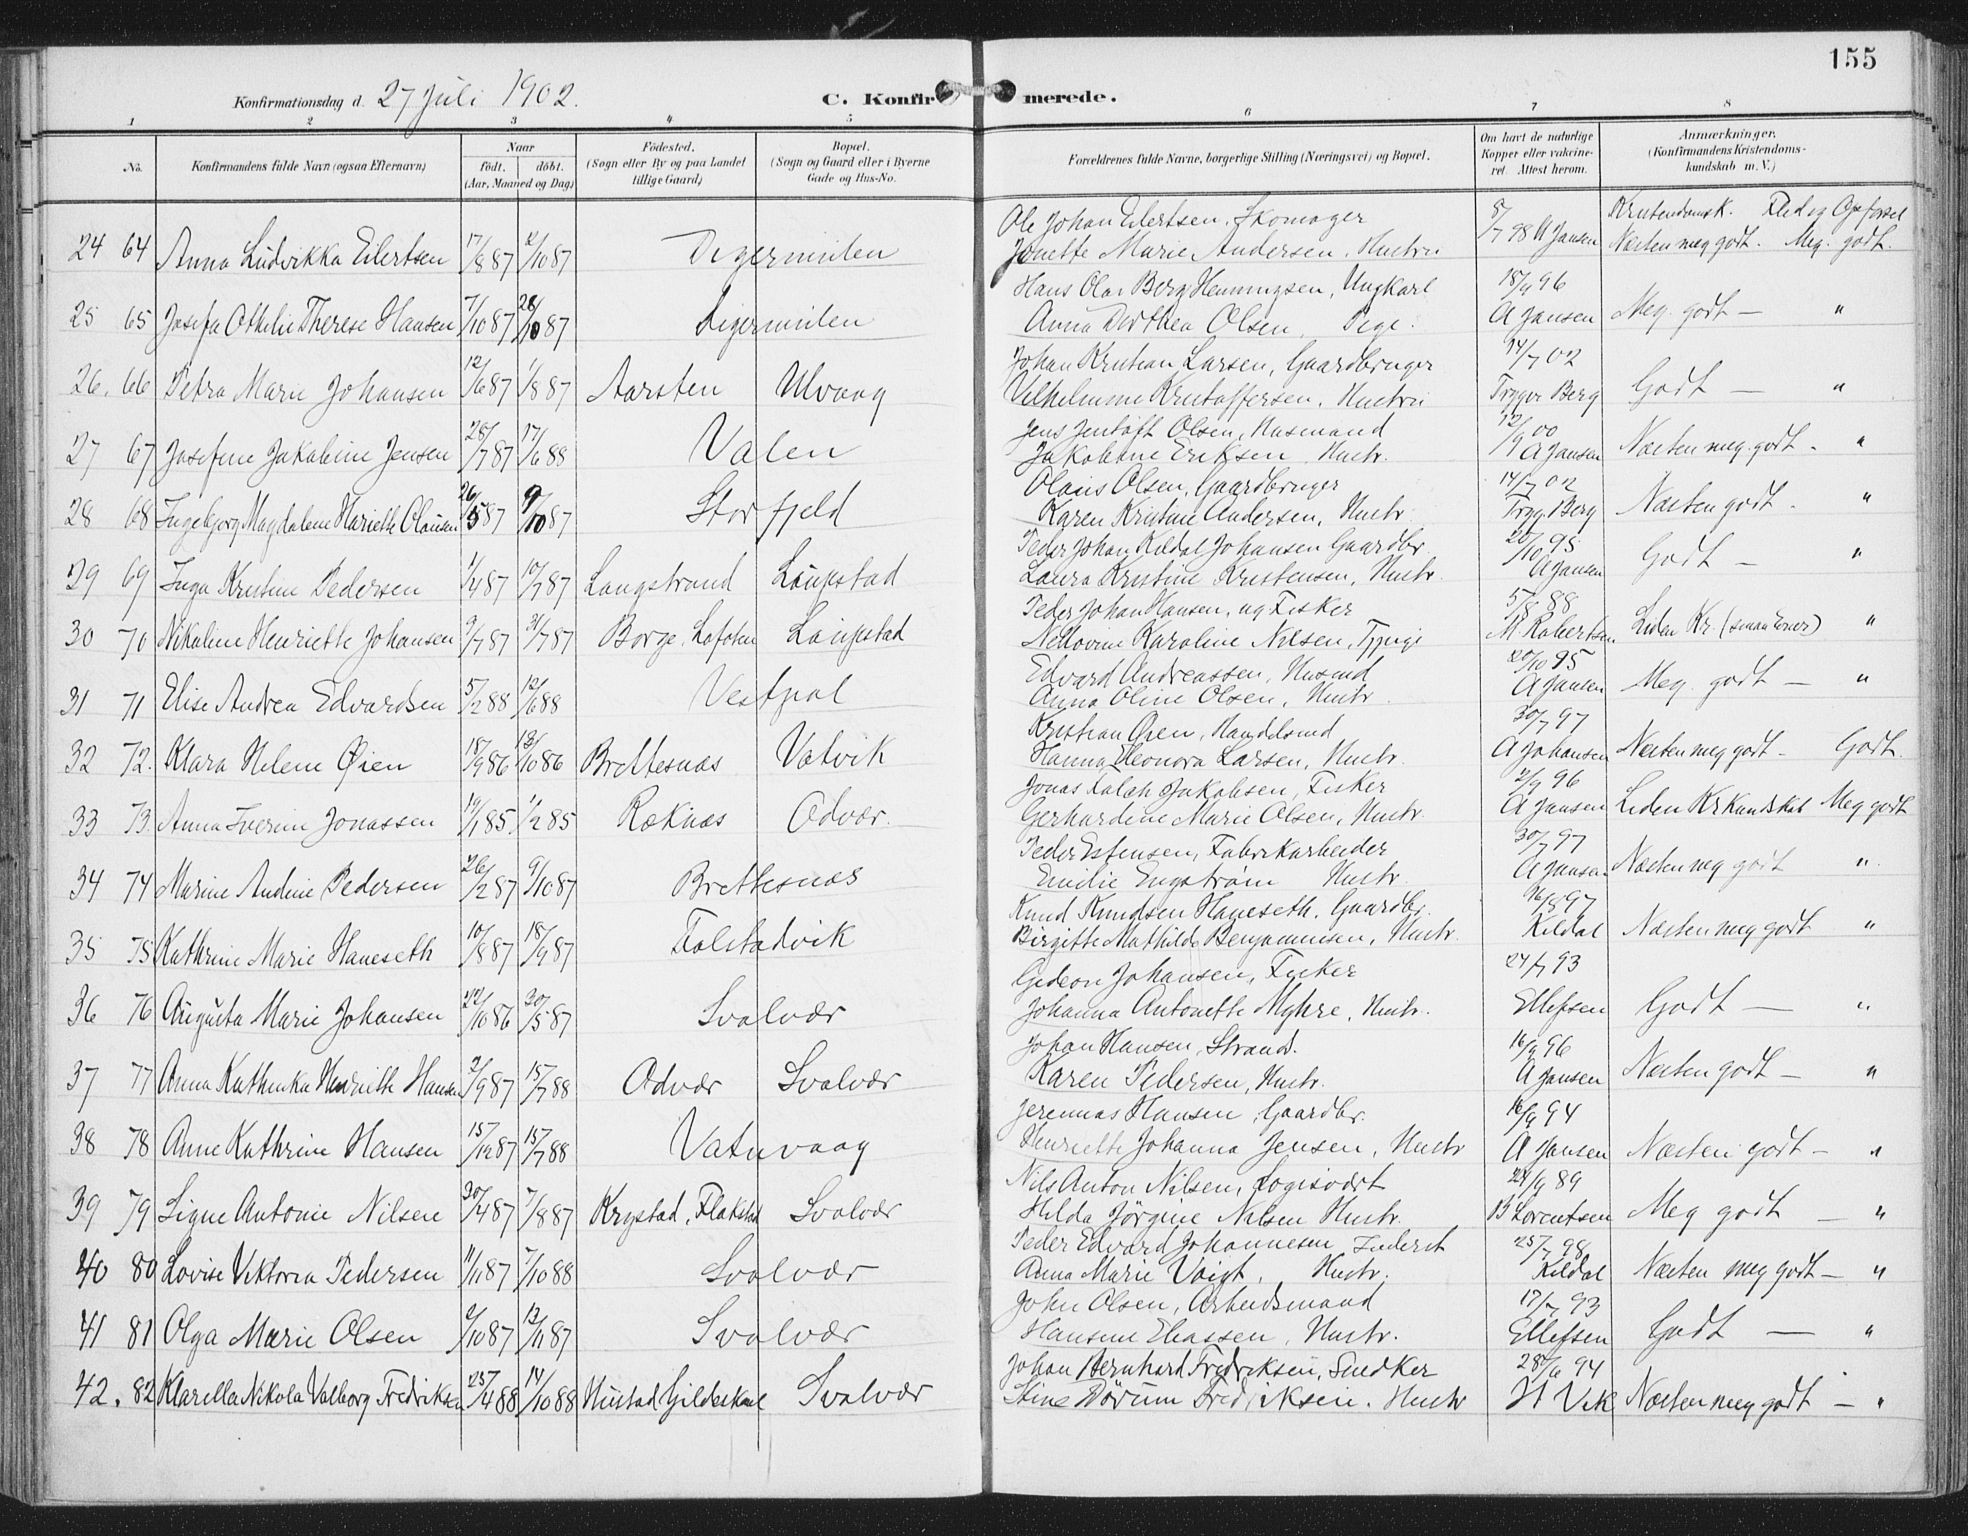 155
Konfirmationsdag d. 27 Juli 1902.
C. Konfirmerede.
1 2 3 4 5 6 7 8
No. Konfirmandens fulde Navn (ogsaa Efternavn) Naar födt. döbt. (Aar, Maaned og Dag) Födested. (Sogn eller By og paa Landet tillige Gaard) Bopæl. (Sogn og Gaard eller i Byerne Gade og Hus-No. Forældrenes fulde Navne, borgerlige Stilling (Næringsvei) og Bopæl. Om havt de naturlige Kopper eller vakcineret. Attest herom. Anmærkninger. (Konfirmandens Kristendomskundskab m. V.)
Ole Johan Eilertsen, Skomager 8/7 98 Kristendomsk. Flid og Opførsel
24 64 Anna Ludvikka Eilertsen 17/8 87 2/10 87 Digermulen Jonette Marie Andersen, Hustru Jansen Næsten meg godt. Meg. godt.
Hans Olai Berg Henningsen, Ungkarl 18/9 96
25 65 Josefa Othelie Therese Hansen 7/10 87 28/10 87 Digermulen Anna Dorthea Olsen, Pige. A Jansen Meg. godt — "
Johan Kristian Larsen, Gaardbruger 14/7 02
26. 66 Petra Marie Johansen 12/6 87 1/8 87 Aarsten Ulvaag Vilhelmine Kristoffersen, Hustru Trygve Berg Godt — "
Jens Jentoft Olsen, Husmand 12/9 00
27 67 Josefine Jakobine Jensen 28/7 87 17/6 88 Valen Jakobine Eriksen, Hustr. A Jansen Næsten meg. godt. "
Olaus Olsen, Gaardbruger 14/7 02
28 68 Ingebjorg Magdalene Hariette Olausen 26/5 87 9/10 87 Storfjeld Karen Kristine Andersen, Hustr. Tryg. Berg Næsten godt. "
Peder Johan Kildal Johansen Gaardbr. 20/10 95
29 69 Inga Kristine Pedersen 1/4 87 10/7 87 Langstrand Laupstad Laura Kristine Kristensen, Hustr. A Jansen Godt — "
Peder Johan Hansen, ug Fisker 5/8 88
30 70 Nikoline Henriette Johansen 9/7 87 31/7 87 Borge, Lofoten Laupstad Karoline Nilsen, M Robertsen Liden Kr. (smaa Evner) "
Edvard Andreassen, Husmd 20/10 95
31 71 Elise Andrea Edvardsen 5/2 88 12/6 88 Vestpol Anna Oline Olsen, Hustr. A Jansen Meg. godt — "
Kristian Øien, Handelsmd 30/7 97
32 72. Klara Helene Øien 18/9 86 13/10 86 Brettesnæs Vatvik Hanna Eleonora Larsen, Hustr. A Johansen Næsten meg godt — Godt.
Jonas Falah Jakobsen, Fisker 2/9 96
33 73. Anna Iverine Jonassen 19/1 85 1/2 85 Reknæs Odvær. Gerhardine Marie Olsen, Hustr. A Jansen Liden Kr kundskab Meg godt
Peder Estensen, Fabrikarbeider 30/7 97
34 74 Marine Andine Pedersen 26/2 87 9/10 87 Brettesnæs Emilie Engstrøm Hustr. A Jansen Næsten meg godt "
Knud Knudsen Haneseth, Gaardbr. 16/8 97
35 75 Kathrine Marie Haneseth 10/8 87 18/9 87 Falstadvik Birgitte Mathilde Benjaminsen, Hustr. Kildal Næsten meg godt "
Gideon Johansen, Fisker 24/7 93
36 76 Augusta Marie Johansen 22/10 86 30/5 87 Svolvær Johanna Antonette Myhre, Hustr. Ellefsen Godt — "
Johan Hansen, Strands. 16/9 96
37 77 Anna Kathinka Henriette Hansen 2/9 87 15/7 88 Odvær Svolvær Karen Pedersen, Hustr. A Jansen Næsten godt — "
Jeremias Hansen, Gaardbr. 16/9 94
38 78 Anne Kathrine Hansen 15/12 87 15/7 88 Vatnvaag Henriette Johanna Jensen, Hustr A Jansen Næsten godt — "
Nils Anton Nilsen, Logisvært 24/9 89
39 79 Signe Antonie Nilsen 30/4 87 7/8 87 Krystad, Flakstad Svolvær Hilda Jørgine Nilsen Hustr. B Lorentsen Meg godt — "
Peder Edvard Johannesen, Inderst 25/7 98
40 80 Lovise Viktoria Pedersen 11/11 87 7/10 88 Svolvær Anna Marie Voigt, Hustr. Kildal Næsten meg godt — "
John Olsen, Arbeidsmand 17/7 93
41 81 Olga Marie Olsen 2/10 87 13/11 87 Svolvær Hansine Eliassen, Hustr. Ellefsen Godt — "
Johan Bernhard Fredriksen, Snedker 28/6 94
42. 82 Klarella Nikola Valborg Fredriksen 25/4 88 14/10 88 Hustad Gildeskaal Svolvær Stine Dörum Fredriksen. Hustr H Vik Næsten meg godt — "